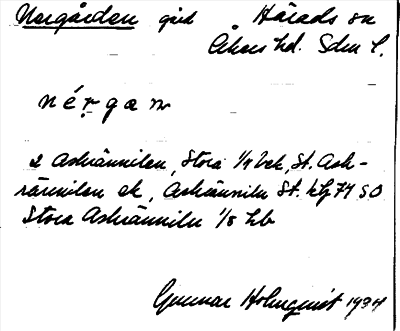 Norgården gård Härads sn
Åkers hd. Sdm l.
nérgan
2 Askrännilen, Stora 1/4 bek, St. Ask-
rännilen ek, Askränniln St. htg 74 SO
Stora Askränniln 1/8 hb
Gunnar Holmquist 1934